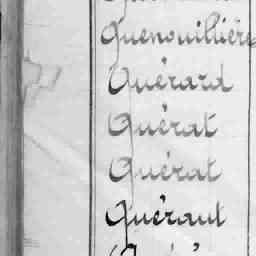 Quenouillière
Guérard
Guérat
Guérat
Guéraut